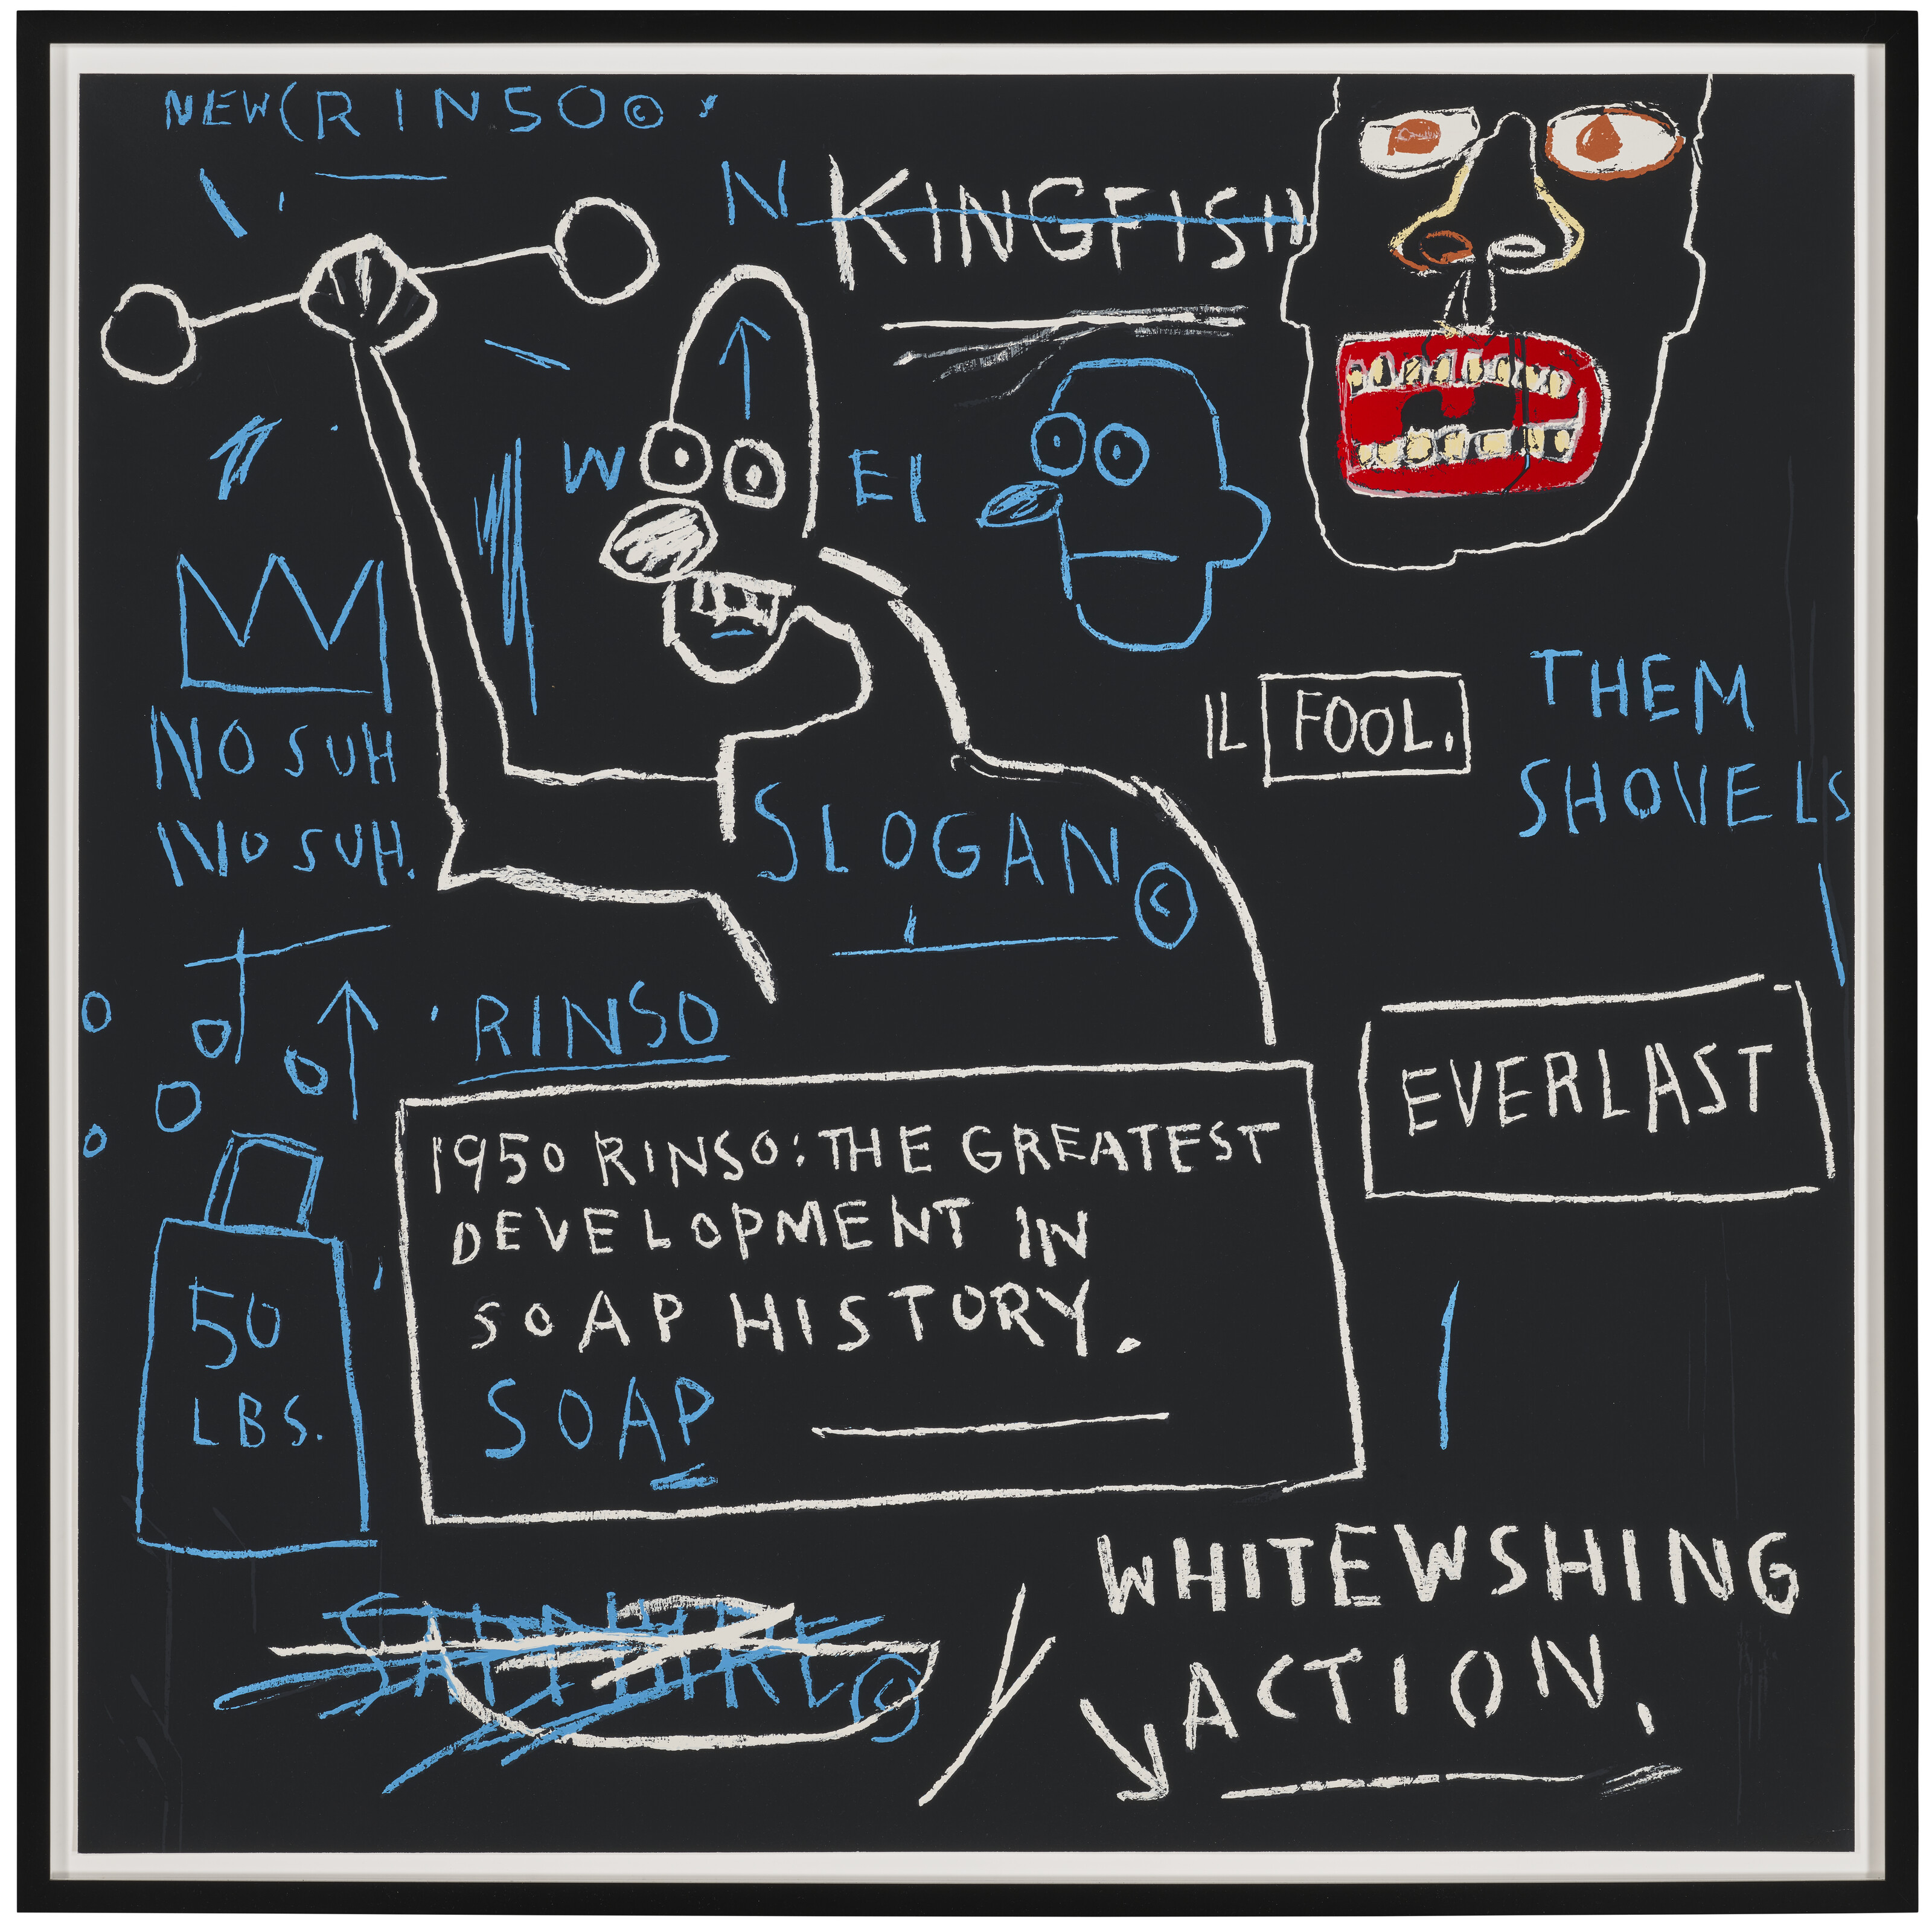 NEW(RINSO©
N KINGFISH
W EI
IL FOOL.
THEM
SHOVELS
NO SUH
NO SUH.
SLOGAN ©
RINSO
EVERLAST
1950 RINSO: THE GREATEST
DEVELOPMENT IN
SOAP HISTORY.
SOAP
50
LBS.
©
WHITEWSHING
ACTION.